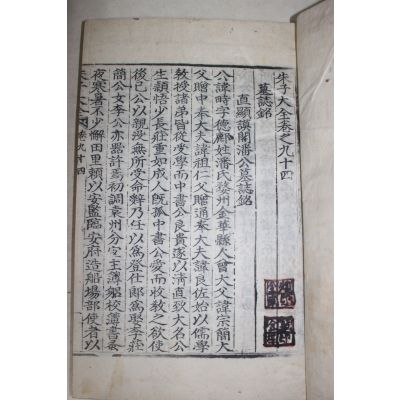 朱子大全卷之九十四
墓誌銘
直顯謨閣潘公墓誌銘
公諱畤字德鄜姓潘氏婺州金華縣人曾大父諱宗簡大
父贈中奉大夫諱祖仁父贈通奉大夫諱良佐始以儒學
教授諸弟皆從受學而中書公良貴遂以清直致大名公
生穎悟少長莊重如成人旣孤中書公愛而收教之欲使
後已公以親沒無所受命辭乃任以爲登仕郎爲娶李莊
簡公女李公亦器許焉初調袁州分宜主簿躬校簿書
夜寒暑不少懈田里賴以安監臨安府造船場部使者以
卷九十四